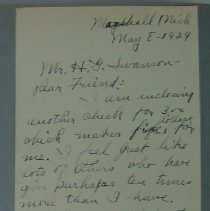 Marshall Mich
May 8-1929
Mr. H. G. Swanson-
Dear Friend:
I am inclosing
another check for 3.00
which makes dollars for
me. I feel just like
lots of others who have
give perhaps ten times
more than I have.